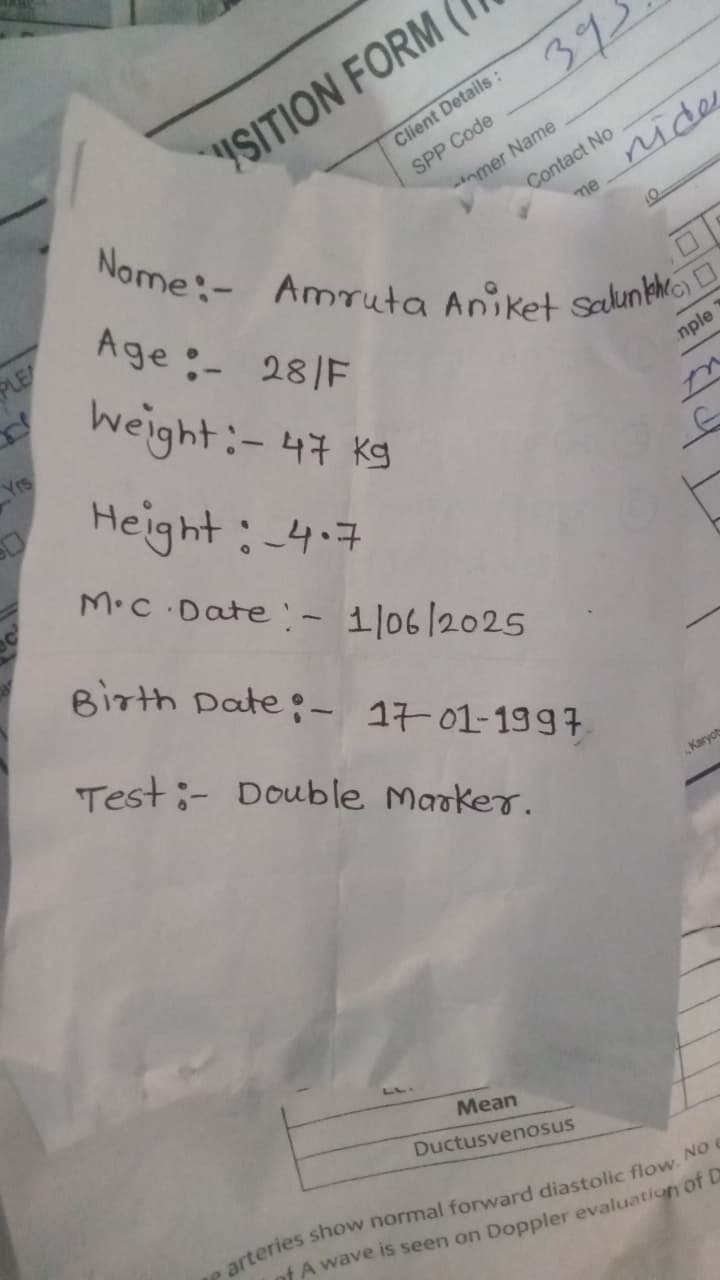 UISITION FORM
Client Details :
SPP Code
Contact No
Name:- Amruta Aniket Salunkhe
Age :- 28/F
Weight:- 47 Kg
Height :- 4.7
M.C. Date :- 1/06/2025
Birth Date :- 17-01-1997
Test :- Double Marker.
Mean
Ductusvenosus
arteries show normal forward diastolic flow. No
of A wave is seen on Doppler evaluation of D